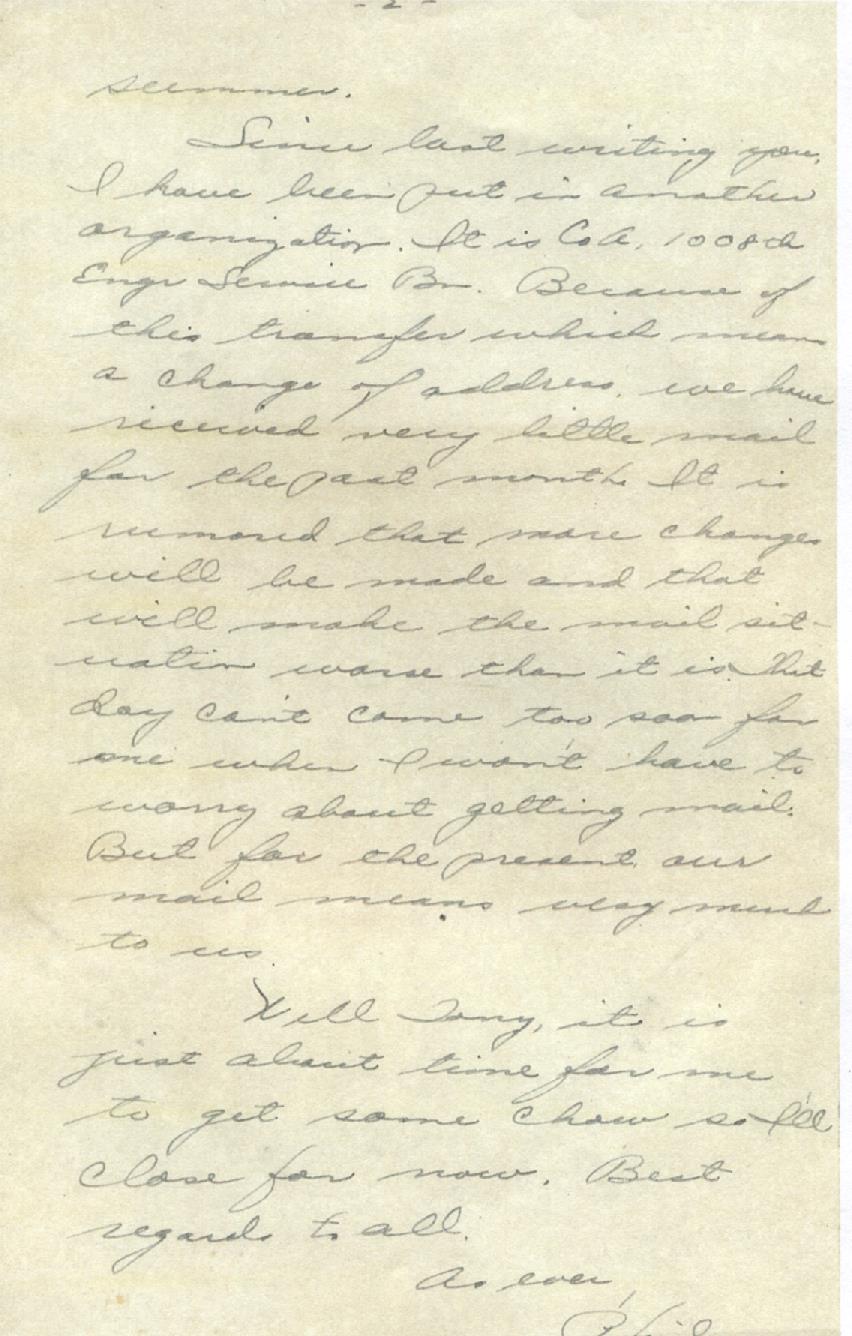 - 2 -
summer.
Since last writing you,
I have been put in another
organization. It is Co A, 1008th
Engr Service Bn. Because of
this transfer which means
a change of address, we have
received very little mail
for the past month. It is
rumored that more changes
will be made and that
will make the mail sit-
uation worse than it is. That
day can't come too soon for
me when I won't have to
worry about getting mail.
But for the present our
mail means very much
to us.
Well Tony, it is
just about time for me
to get some chow so I'll
close for now. Best
regards to all.
As ever,
Phil